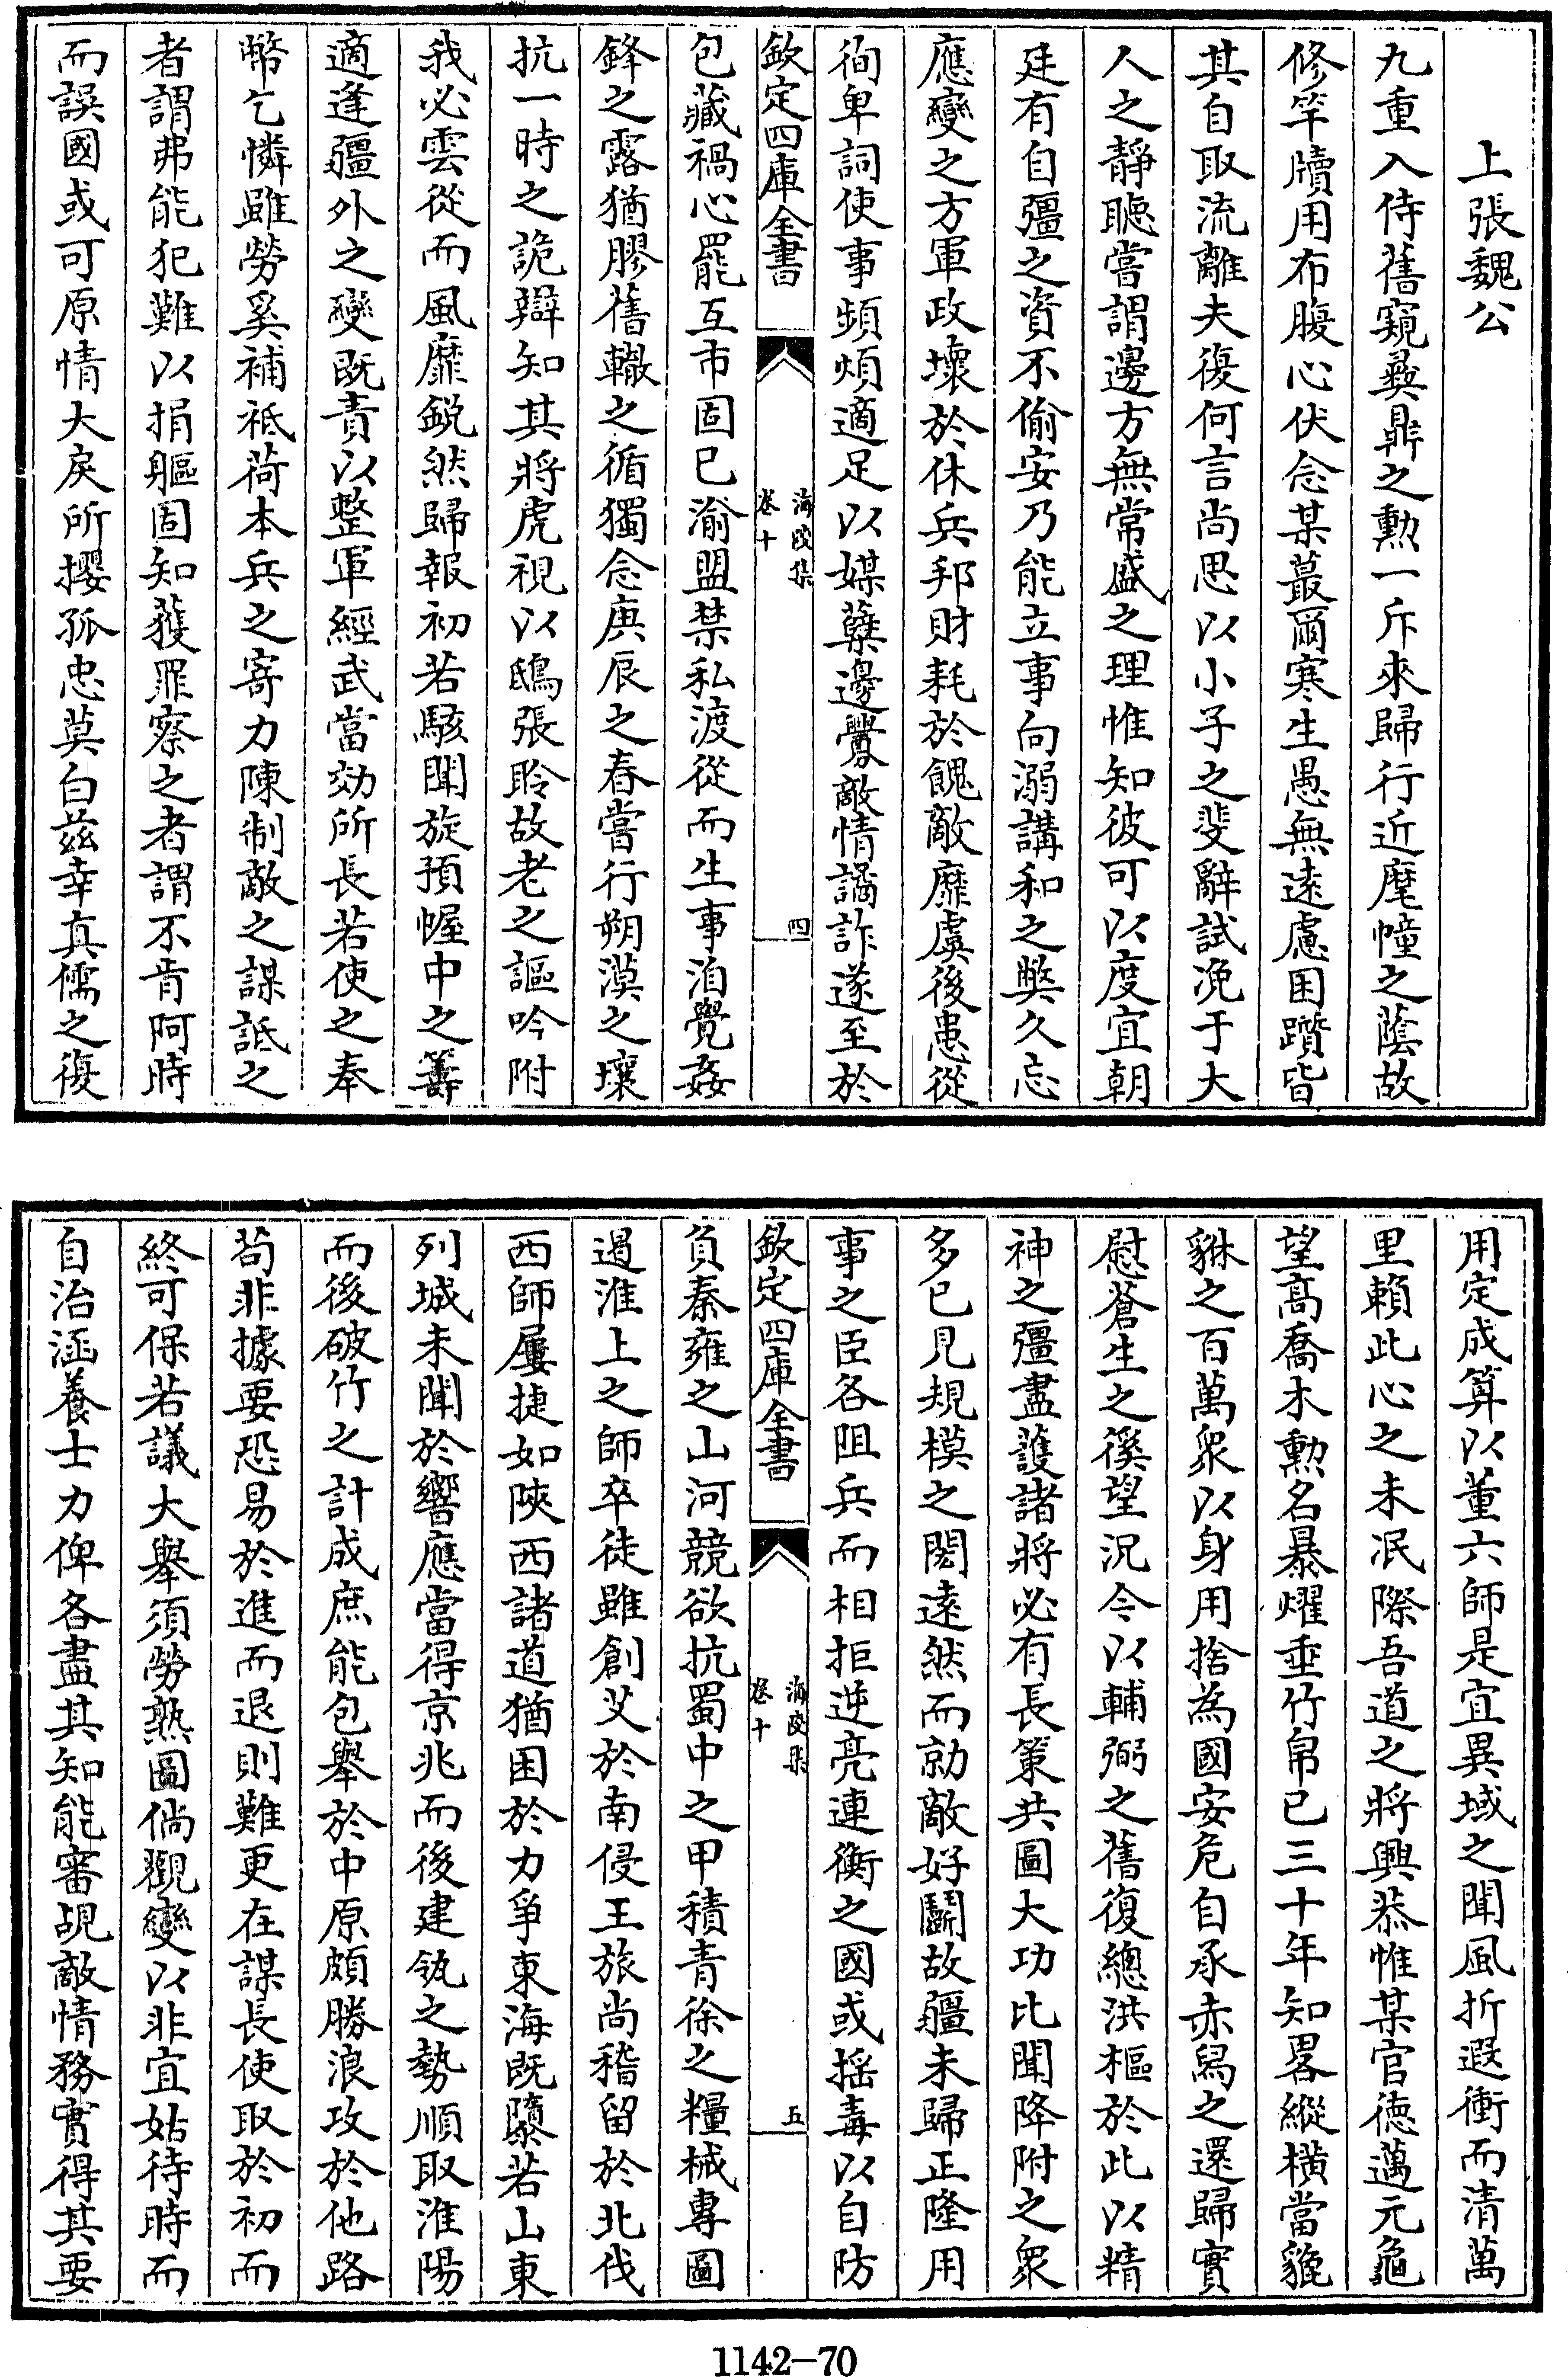 上張魏公
九重入侍舊窺彝鼎之勲一斥來歸行近麾幢之蔭故
修竿牘用布腹心伏念某蕞爾寒生愚無遠慮困躓皆
其自取流離夫復何言尚思以小子之斐辭試浼于大
人之靜聽嘗謂邊方無常盛之理惟知彼可以度宜朝
廷有自彊之資不偷安乃能立事向溺講和之弊久忘
應變之方軍政壞於休兵邦財耗於餽敵靡虞後患從
徇卑詞使事頻煩適足以媒孽邊釁敵情譎詐遂至於
欽定四庫全書
海陵集
卷十
四
包藏禍心罷互市固已渝盟禁私渡從而生事洎覺姦
鋒之露猶膠舊轍之循獨念庚辰之春嘗行朔漠之壤
抗一時之詭辯知其將虎視以鴟張聆故老之謳吟附
我必雲從而風靡銳然歸報初若駭聞旋預幄中之籌
適逢疆外之變既責以整軍經武當効所長若使之奉
幣乞憐雖勞奚補祗荷本兵之寄力陳制敵之謀詆之
者謂弗能犯難以捐軀固知獲罪察之者謂不肯阿時
而誤國或可原情大戾所攖孤忠莫白兹幸真儒之復
用定成算以董六師是宜異域之聞風折遐衝而清萬
里賴此心之未泯際吾道之將興恭惟某官徳邁元龜
望高喬木勲名暴燿垂竹帛已三十年知畧縱橫當貔
貅之百萬衆以身用捨為國安危自承赤舄之還歸實
慰蒼生之徯望況今以輔弼之舊復總洪樞於此以精
神之彊盡護諸將必有長策共圖大功比聞降附之衆
多已見規模之閎遠然而勍敵好鬭故疆未歸正隆用
事之臣各阻兵而相拒逆亮連衡之國或揺毒以自防
欽定四庫全書
海陵集
卷十
五
負秦雍之山河競欲抗蜀中之甲積青徐之糧械專圖
遏淮上之師卒徒雖創艾於南侵王旅尚稽留於北伐
西師屢捷如陝西諸道猶困於力爭東海既隳若山東
列城未聞於響應當得京兆而後建瓴之勢順取淮陽
而後破竹之計成庶能包舉於中原頗勝浪攻於他路
苟非據要恐易於進而退則難更在謀長使取於初而
終可保若議大舉須勞熟圖倘觀變以非宜姑待時而
自治涵養士力俾各盡其知能審覘敵情務實得其要
1142—70